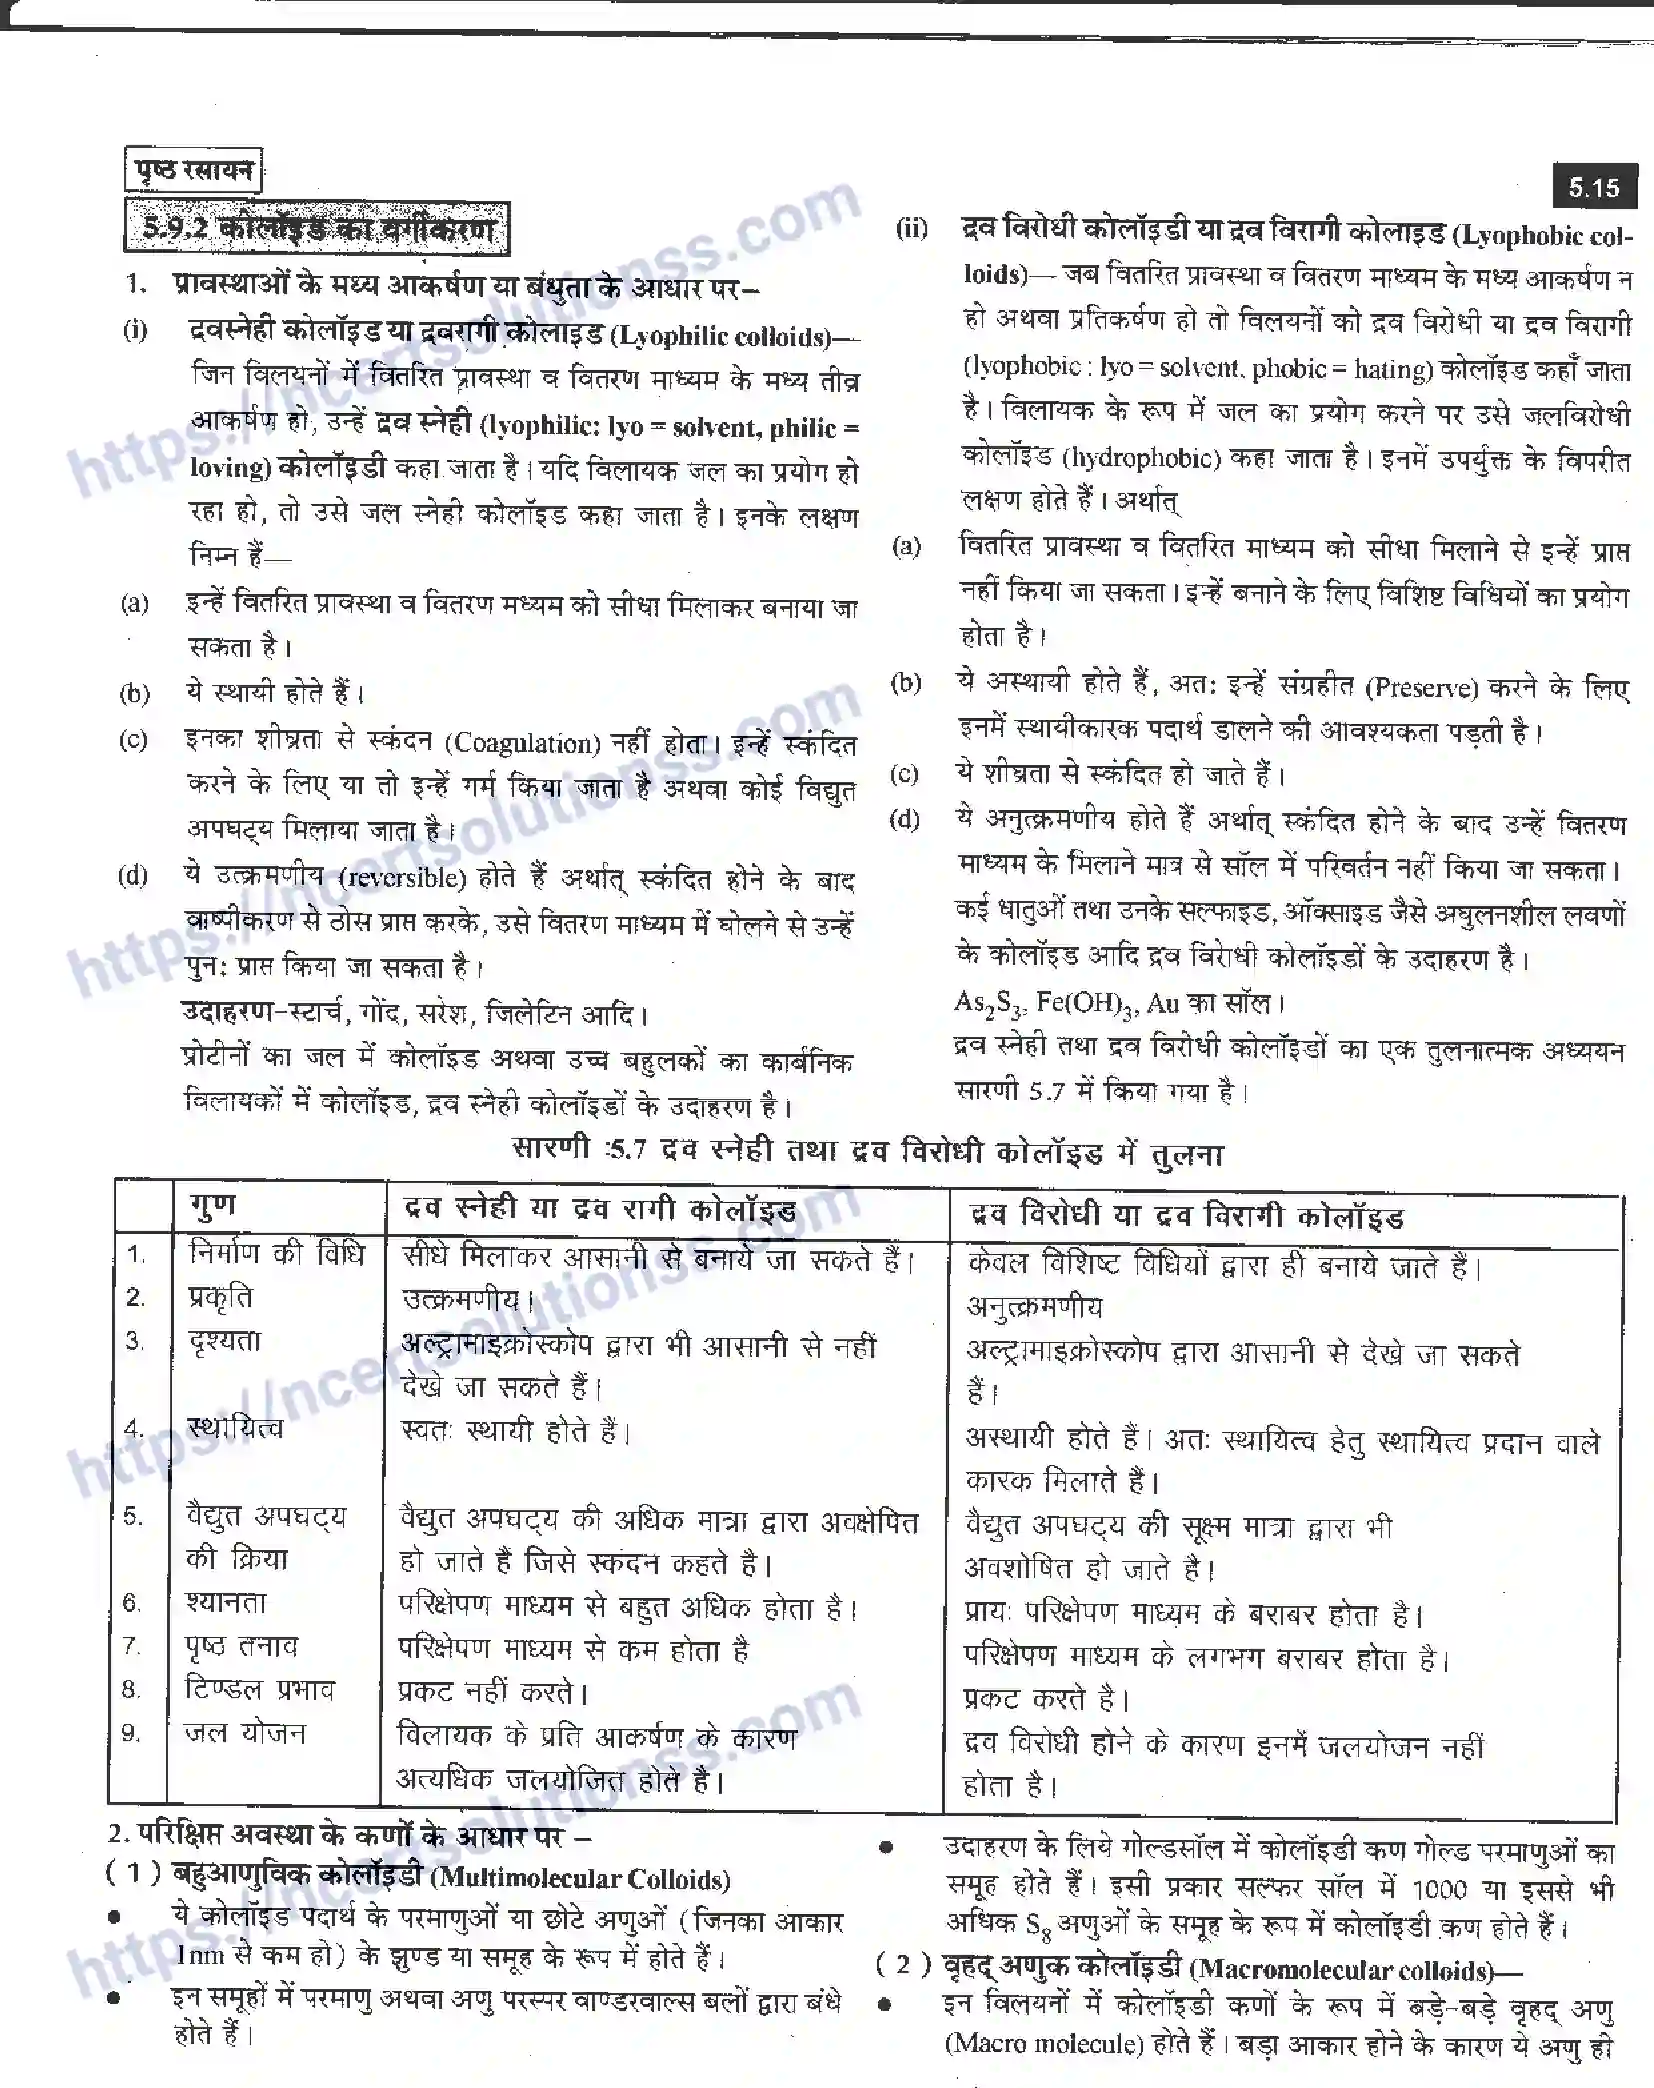 पृष्ठ रसायन
5.15
5.9.2 कोलॉइड का वर्गीकरण
1. प्रावस्थाओं के मध्य आकर्षण या बंधुता के आधार पर–
(i) द्रवस्नेही कोलॉइड या द्रवरागी कोलाइड (Lyophilic colloids)—
जिन विलयनों में वितरित प्रावस्था व वितरण माध्यम के मध्य तीव्र
आकर्षण हो, उन्हें द्रव स्नेही (lyophilic: lyo = solvent, philic =
loving) कोलॉइडी कहा जाता है। यदि विलायक जल का प्रयोग हो
रहा हो, तो उसे जल स्नेही कोलॉइड कहा जाता है। इनके लक्षण
निम्न हैं—
(a) इन्हें वितरित प्रावस्था व वितरण मध्यम को सीधा मिलाकर बनाया जा
सकता है।
(b) ये स्थायी होते हैं।
(c) इनका शीघ्रता से स्कंदन (Coagulation) नहीं होता। इन्हें स्कंदित
करने के लिए या तो इन्हें गर्म किया जाता है अथवा कोई विद्युत
अपघट्य मिलाया जाता है।
(d) ये उत्क्रमणीय (reversible) होते हैं अर्थात् स्कंदित होने के बाद
वाष्पीकरण से ठोस प्राप्त करके, उसे वितरण माध्यम में घोलने से उन्हें
पुन: प्राप्त किया जा सकता है।
उदाहरण–स्टार्च, गोंद, सरेश, जिलेटिन आदि।
प्रोटीनों का जल में कोलॉइड अथवा उच्च बहुलकों का कार्बनिक
विलायकों में कोलॉइड, द्रव स्नेही कोलॉइडों के उदाहरण है।
(ii) द्रव विरोधी कोलॉइडी या द्रव विरागी कोलाइड (Lyophobic col-
loids)— जब वितरित प्रावस्था व वितरण माध्यम के मध्य आकर्षण न
हो अथवा प्रतिकर्षण हो तो विलयनों को द्रव विरोधी या द्रव विरागी
(lyophobic : lyo = solvent, phobic = hating) कोलॉइड कहाँ जाता
है। विलायक के रूप में जल का प्रयोग करने पर उसे जलविरोधी
कोलॉइड (hydrophobic) कहा जाता है। इनमें उपर्युक्त के विपरीत
लक्षण होते हैं। अर्थात्
(a) वितरित प्रावस्था व वितरित माध्यम को सीधा मिलाने से इन्हें प्राप्त
नहीं किया जा सकता। इन्हें बनाने के लिए विशिष्ट विधियों का प्रयोग
होता है।
(b) ये अस्थायी होते हैं, अत: इन्हें संग्रहीत (Preserve) करने के लिए
इनमें स्थायीकारक पदार्थ डालने की आवश्यकता पड़ती है।
(c) ये शीघ्रता से स्कंदित हो जाते हैं।
(d) ये अनुत्क्रमणीय होते हैं अर्थात् स्कंदित होने के बाद उन्हें वितरण
माध्यम के मिलाने मात्र से सॉल में परिवर्तन नहीं किया जा सकता।
कई धातुओं तथा उनके सल्फाइड, ऑक्साइड जैसे अघुलनशील लवणों
के कोलॉइड आदि द्रव विरोधी कोलॉइडों के उदाहरण है।
As₂S₃, Fe(OH)₃, Au का सॉल।
द्रव स्नेही तथा द्रव विरोधी कोलॉइडों का एक तुलनात्मक अध्ययन
सारणी 5.7 में किया गया है।
सारणी :5.7 द्रव स्नेही तथा द्रव विरोधी कोलॉइड में तुलना
गुण द्रव स्नेही या द्रव रागी कोलॉइड द्रव विरोधी या द्रव विरागी कोलॉइड
1. निर्माण की विधि सीधे मिलाकर आसानी से बनाये जा सकते हैं। केवल विशिष्ट विधियों द्वारा ही बनाये जाते हैं।
2. प्रकृति उत्क्रमणीय। अनुत्क्रमणीय
3. दृश्यता अल्ट्रामाइक्रोस्कोप द्वारा भी आसानी से नहीं अल्ट्रामाइक्रोस्कोप द्वारा आसानी से देखे जा सकते
देखे जा सकते हैं। हैं।
4. स्थायित्व स्वतः स्थायी होते हैं। अस्थायी होते हैं। अतः स्थायित्व हेतु स्थायित्व प्रदान वाले
कारक मिलाते हैं।
5. वैद्युत अपघट्य वैद्युत अपघट्य की अधिक मात्रा द्वारा अवक्षेपित वैद्युत अपघट्य की सूक्ष्म मात्रा द्वारा भी
की क्रिया हो जाते हैं जिसे स्कंदन कहते है। अवशोषित हो जाते है।
6. श्यानता परिक्षेपण माध्यम से बहुत अधिक होता है। प्रायः परिक्षेपण माध्यम के बराबर होता है।
7. पृष्ठ तनाव परिक्षेपण माध्यम से कम होता है परिक्षेपण माध्यम के लगभग बराबर होता है।
8. टिण्डल प्रभाव प्रकट नहीं करते। प्रकट करते है।
9. जल योजन विलायक के प्रति आकर्षण के कारण द्रव विरोधी होने के कारण इनमें जलयोजन नहीं
अत्यधिक जलयोजित होते है। होता है।
2. परिक्षिप्त अवस्था के कणों के आधार पर –
( 1 ) बहुआणुविक कोलॉइडी (Multimolecular Colloids)
● ये कोलॉइड पदार्थ के परमाणुओं या छोटे अणुओं (जिनका आकार
1nm से कम हो) के झुण्ड या समूह के रूप में होते हैं।
● इन समूहों में परमाणु अथवा अणु परस्पर वाण्डरवाल्स बलों द्वारा बंधे
होते हैं।
● उदाहरण के लिये गोल्डसॉल में कोलॉइडी कण गोल्ड परमाणुओं का
समूह होते हैं। इसी प्रकार सल्फर सॉल में 1000 या इससे भी
अधिक S₈ अणुओं के समूह के रूप में कोलॉइडी कण होते हैं।
( 2 ) वृहद् अणुक कोलॉइडी (Macromolecular colloids)—
● इन विलयनों में कोलॉइडी कणों के रूप में बड़े-बड़े वृहद् अणु
(Macro molecule) होते हैं। बड़ा आकार होने के कारण ये अणु ही
https://ncertsolutionss.com
https://ncertsolutionss.com
https://ncertsolutionss.com
https://ncertsolutionss.com